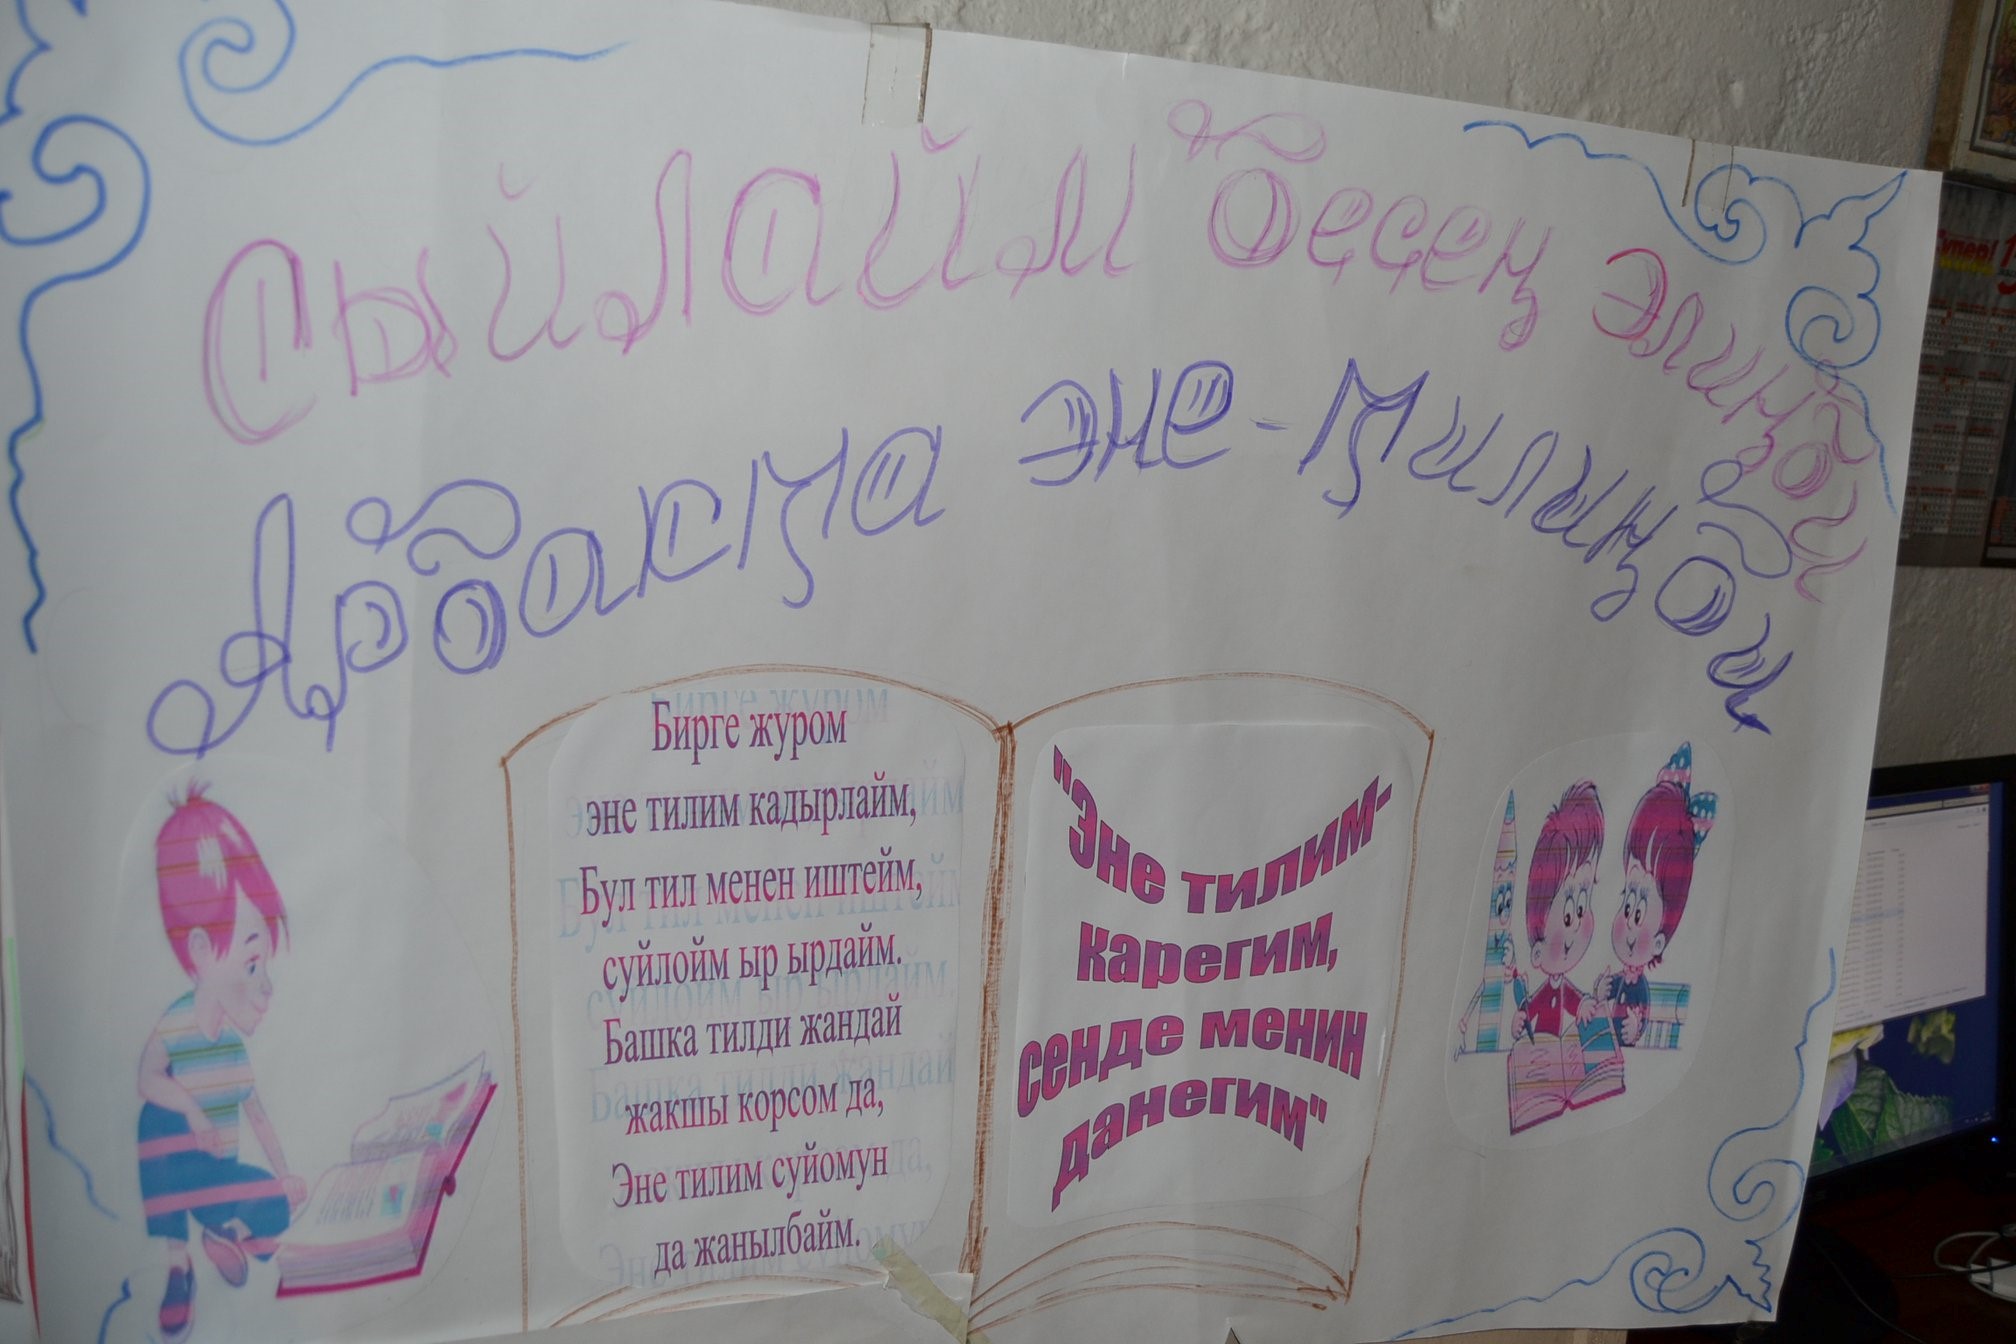 Сыйлайм десең элиңди
Ардакта эне-тилиңди
Бирге журом
эне тилим кадырлайм,
Бул тил менен иштейм,
суйлойм ыр ырдайм.
Башка тилди жандай
жакшы корсом да,
Эне тилим суйомун
да жанылбайм.
"Эне тилим-
карегим,
сенде менин
данегим"